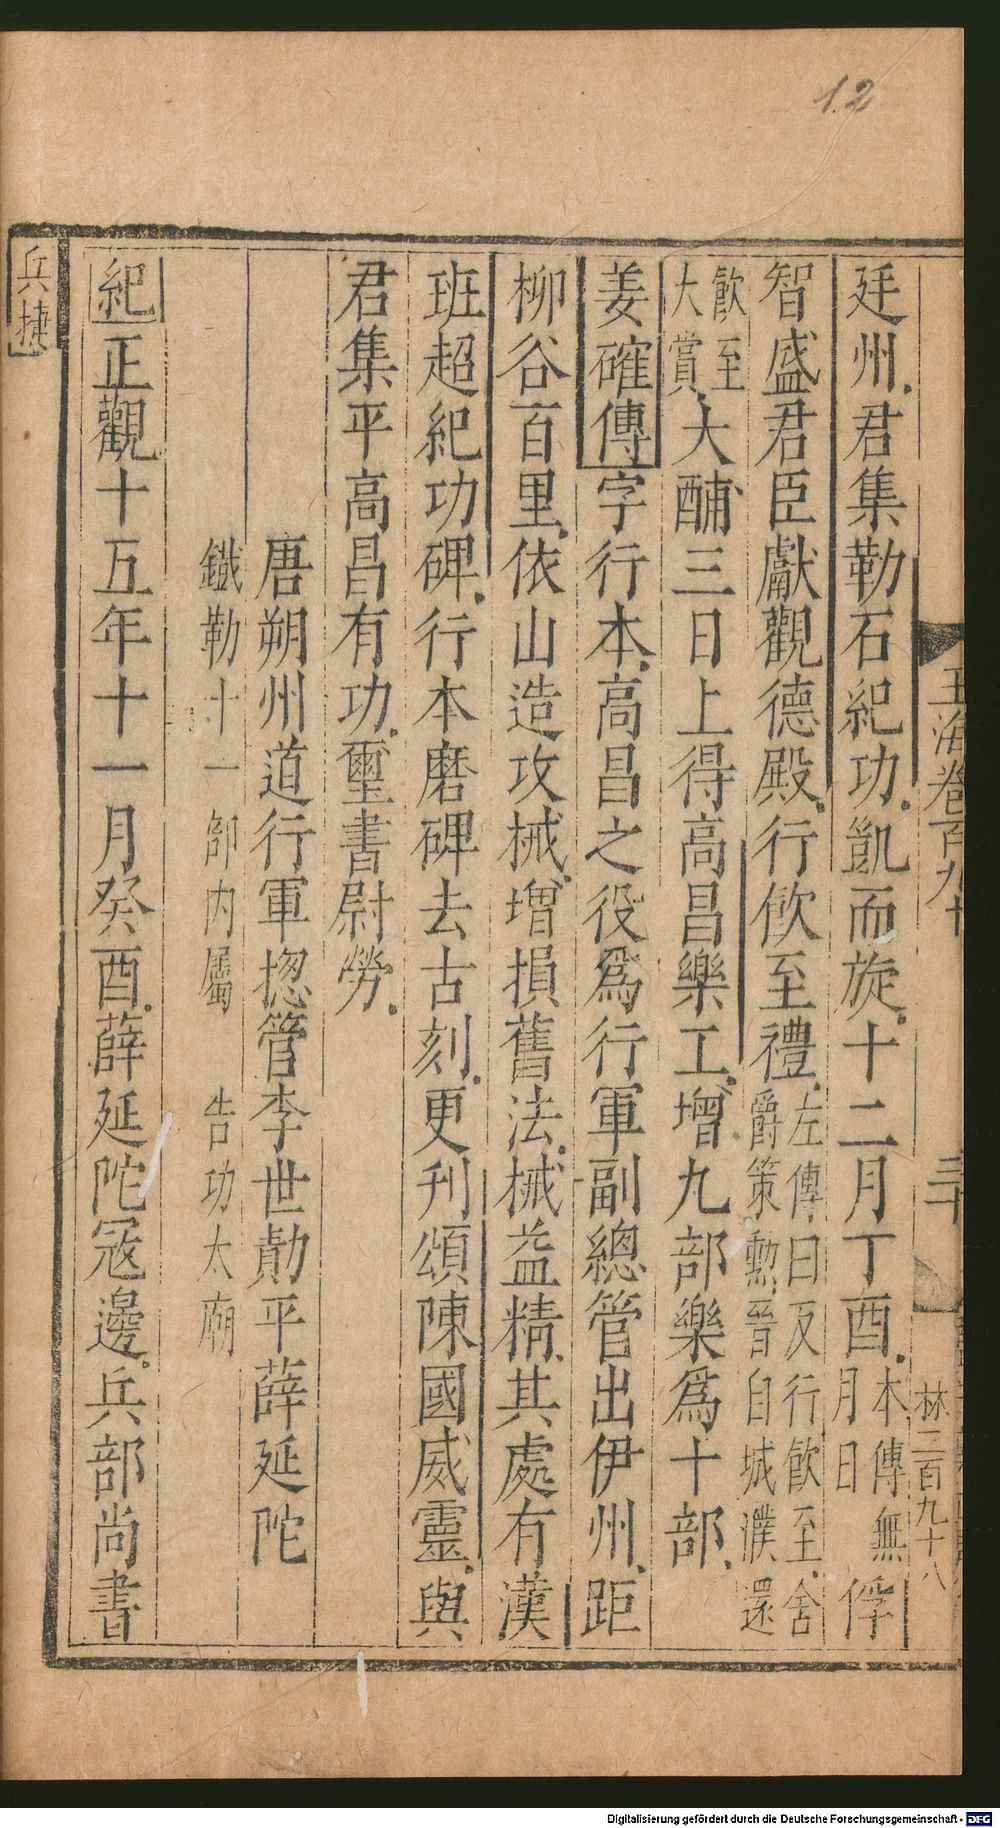 12
玉海卷百九十
三十
林二百九十八
廷州君集勒石紀功凱而旋十二月丁酉本傳無月日俘
智盛君臣獻觀德殿行飲至禮左傳曰反行飲至舍爵策勲晉自城濮還
飲至大賞大酺三日上得高昌樂工增九部樂爲十部
姜確傳字行本高昌之役爲行軍副總管出伊州距
柳谷百里依山造攻械增損舊法械益精其處有漢
班超紀功碑行本磨碑去古刻更刊頌陳國威靈與
君集平高昌有功璽書尉勞
唐朔州道行軍揔管李世勣平薛延陀
鐵勒十一部内屬 告功太廟
紀正觀十五年十一月癸酉薛延陀冦邊兵部尚書
兵捷
Digitalisierung gefördert durch die Deutsche Forschungsgemeinschaft - DFG